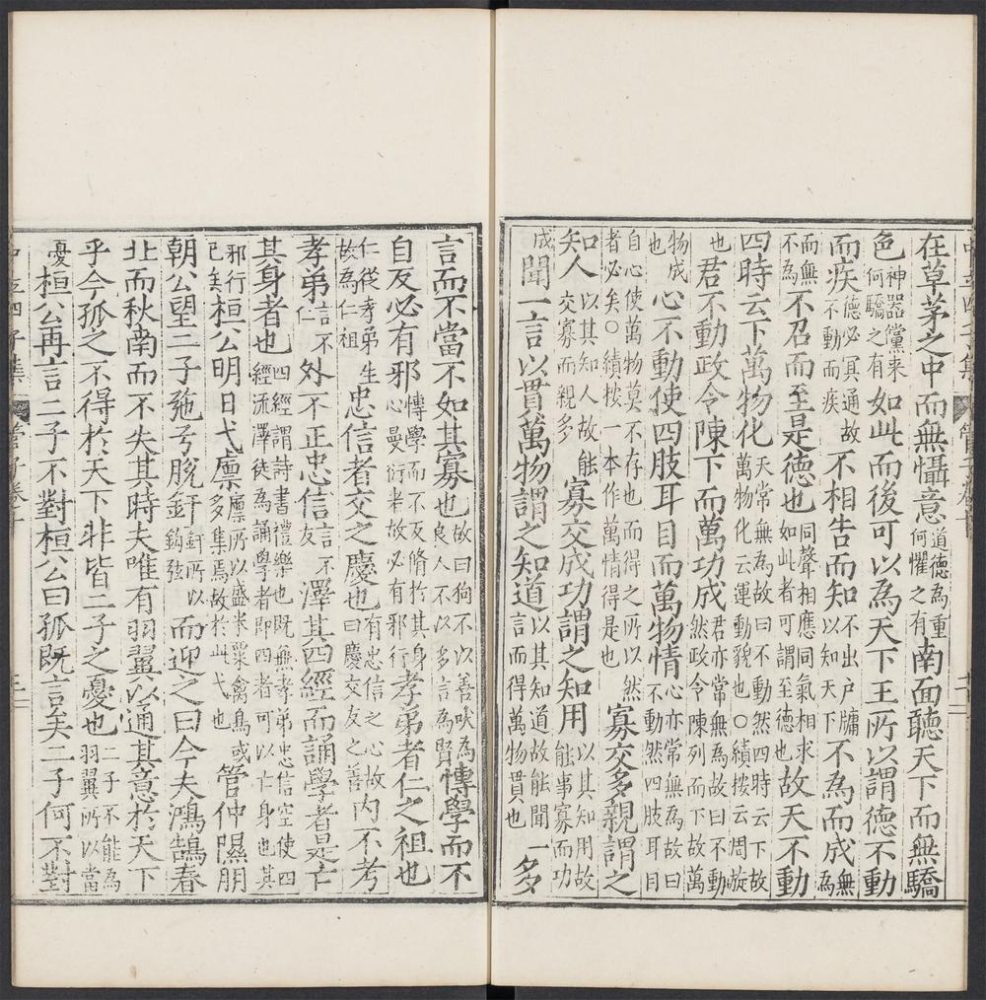 在草茅之中而無懾意道德為重何懼之有南面聽天下而無驕
色神器儻来何驕之有如此而後可以為天下王所以謂德不動
而疾德必冥通故不動而疾不相告而知不出户牖以知天下不為而成無為
而無不為不召而至是德也同聲相應同氣相求如此者可謂至德也故天不動
四時云下萬物化天常無為故曰不動然四時云下故萬物化云運動貌也○續按云周旋
也君不動政令陳下而萬功成君亦常無為故曰不動然政令陳列而下故萬
物成也心不動使四肢耳目而萬物情心亦常無為故曰不動然四肢耳目
自心使萬物莫不存也而得之所以然者必矣○續按一本作萬情得是也寡交多親謂之
知人以其知人故能交寡而親多寡交成功謂之知用以其知用故能事寡而功
成聞一言以貫萬物謂之知道以其知道故能聞一言而得萬物貫也多
言而不當不如其寡也故曰狗不以善吠為良人不以多言為賢博學而不
自反必有邪博學而不反脩於其身心曼衍者故必有邪行孝弟者仁之祖也
仁從孝弟生故為仁祖忠信者交之慶也有忠信之心故曰慶交友之善内不考
孝弟言不仁外不正忠信言不友澤其四經而誦學者是亡
其身者也四經謂詩書禮樂也既無孝弟忠信空使四經流澤徒為誦學者即四者可以亡身也其
邪行已矣桓公明日弋廪廪所以盛米粟禽鳥或多集焉故於此弋也管仲隰朋
朝公望二子弛弓脱釬釬所以鈎弦而迎之曰今夫鴻鵠春
北而秋南而不失其時夫唯有羽翼以通其意於天下
乎今孤之不得於天下非皆二子之憂也二子不能為羽翼所以當
憂桓公再言二子不對桓公曰孤既言矣二子何不對